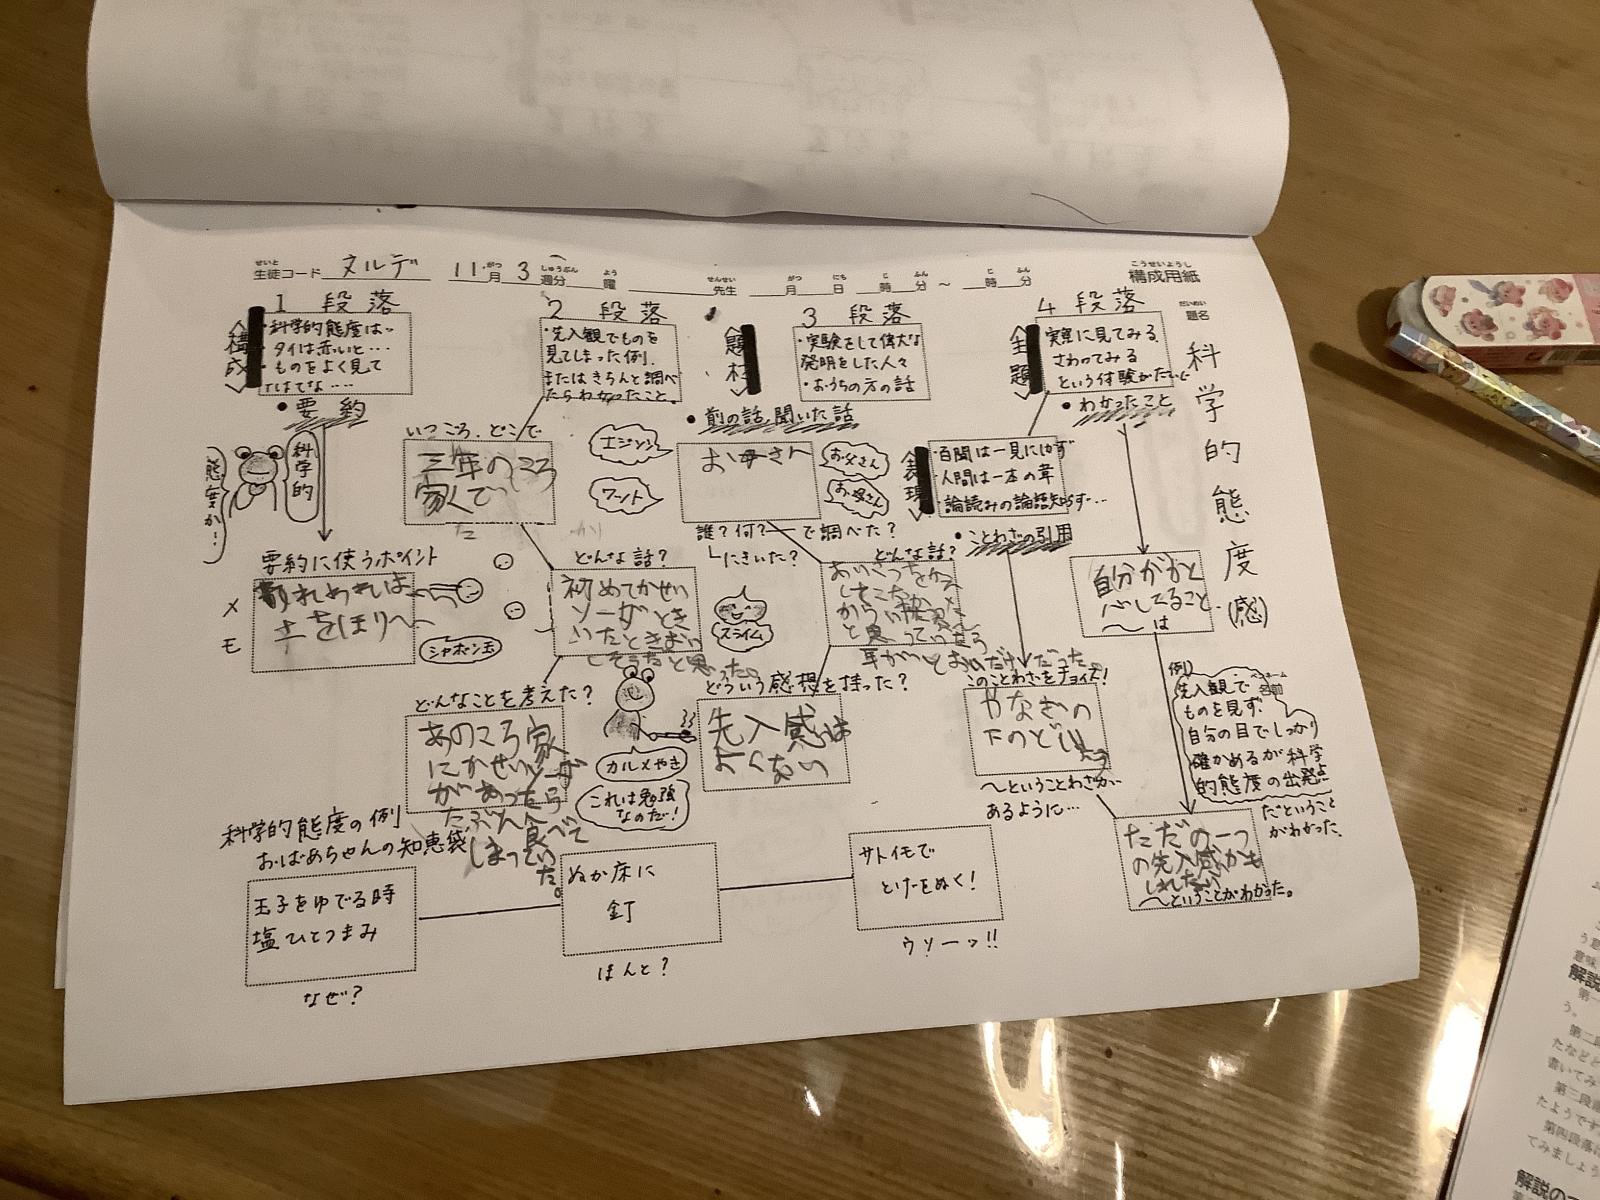 構成用紙
こうせいようし
生徒コード ヌルデ 11月 3週分 曜 先生 月 日 時 分 ~ 時 分
せいと がつ しゅうぶん よう せんせい がつ にち じ ふん じ ふん
だいめい
題名
科学的態度(感)
1 段落
<構成>
・科学的態度は‥
・タイは赤いと…
・ものをよく見て
はてな‥‥
・要約
科学的
態度か!
要約に使うポイント
メモ
土をほり
シャボン玉
2 段落
・先入観でものを
見てしまった例.
またはきちんと調べ
たらわかったこと。
いつころ.どこで
三年のころ
家くでした
エジソン
ワット
どんな話?
初めてかせい
ソーダとき
いたときおい
しそうだと思った。
どんなことを考えた?
あのころ家
にかせいソーダ
があったら
たぶん食べて
しまっていた。
カルメやき
これは勉強
なのだ!
スライム
3 段落
<題材>
・実験をして偉大な
発明をした人々
・おうちの方の話
・前の話.聞いた話
お母さん
お父さん
お母さん
誰?何?ーで調べた?
にきいた?
どんな話?
どういう感想を持った?
先入感は
よくない
4 段落
<主題>
実際に見てみる.
さわってみる
という体験がたいじ
・わかったこと
<表現>
・百聞は一見にしかず
・人間は一本の葦
・論語読みの論語知らず…
・ことわざの引用
このことわざをチョイス!
やなぎの
下のどじょう
〜ということわざが
あるように…
自分がかと
心してることは
〜は
例)
先入観で
ものを見ず.
自分の目でしっかり
確かめるが科学
的態度の出発点
だということ
がわかった.
ペンネーム
名前
ただの一つ
の先入感かも
しれない
〜ということがわかった。
科学的態度の例
おばあちゃんの知恵袋
玉子をゆでる時
塩ひとつまみ
なぜ?
ぬか床に
釘
ほんと?
サトイモで
とげをぬく!
ウソーッ!!
解説
第一
う。
第二段
たなどと
書いてみ
第三段
たようです
第四段落
てみましょう
解説の